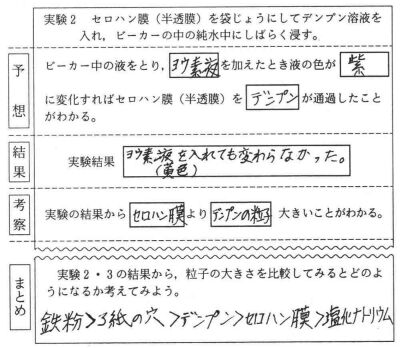 実験2 セロハン膜(半透膜)を袋じょうにしてデンプン溶液を
入れ，ビーカーの中の純水中にしばらく浸す。
予想
ビーカー中の液をとり，ヨウ素液を加えたとき液の色が 紫
に変化すればセロハン膜(半透膜)を デンプン が通過したこと
がわかる。
結果
実験結果 ヨウ素液を入れても変わらなかった。
(黄色)
考察
実験の結果から セロハン膜 より デンプンの粒子 大きいことがわかる。
まとめ
実験2・3の結果から，粒子の大きさを比較してみるとどのよ
うになるか考えてみよう。
鉄粉>ろ紙の穴>デンプン>セロハン膜>塩化ナトリウム